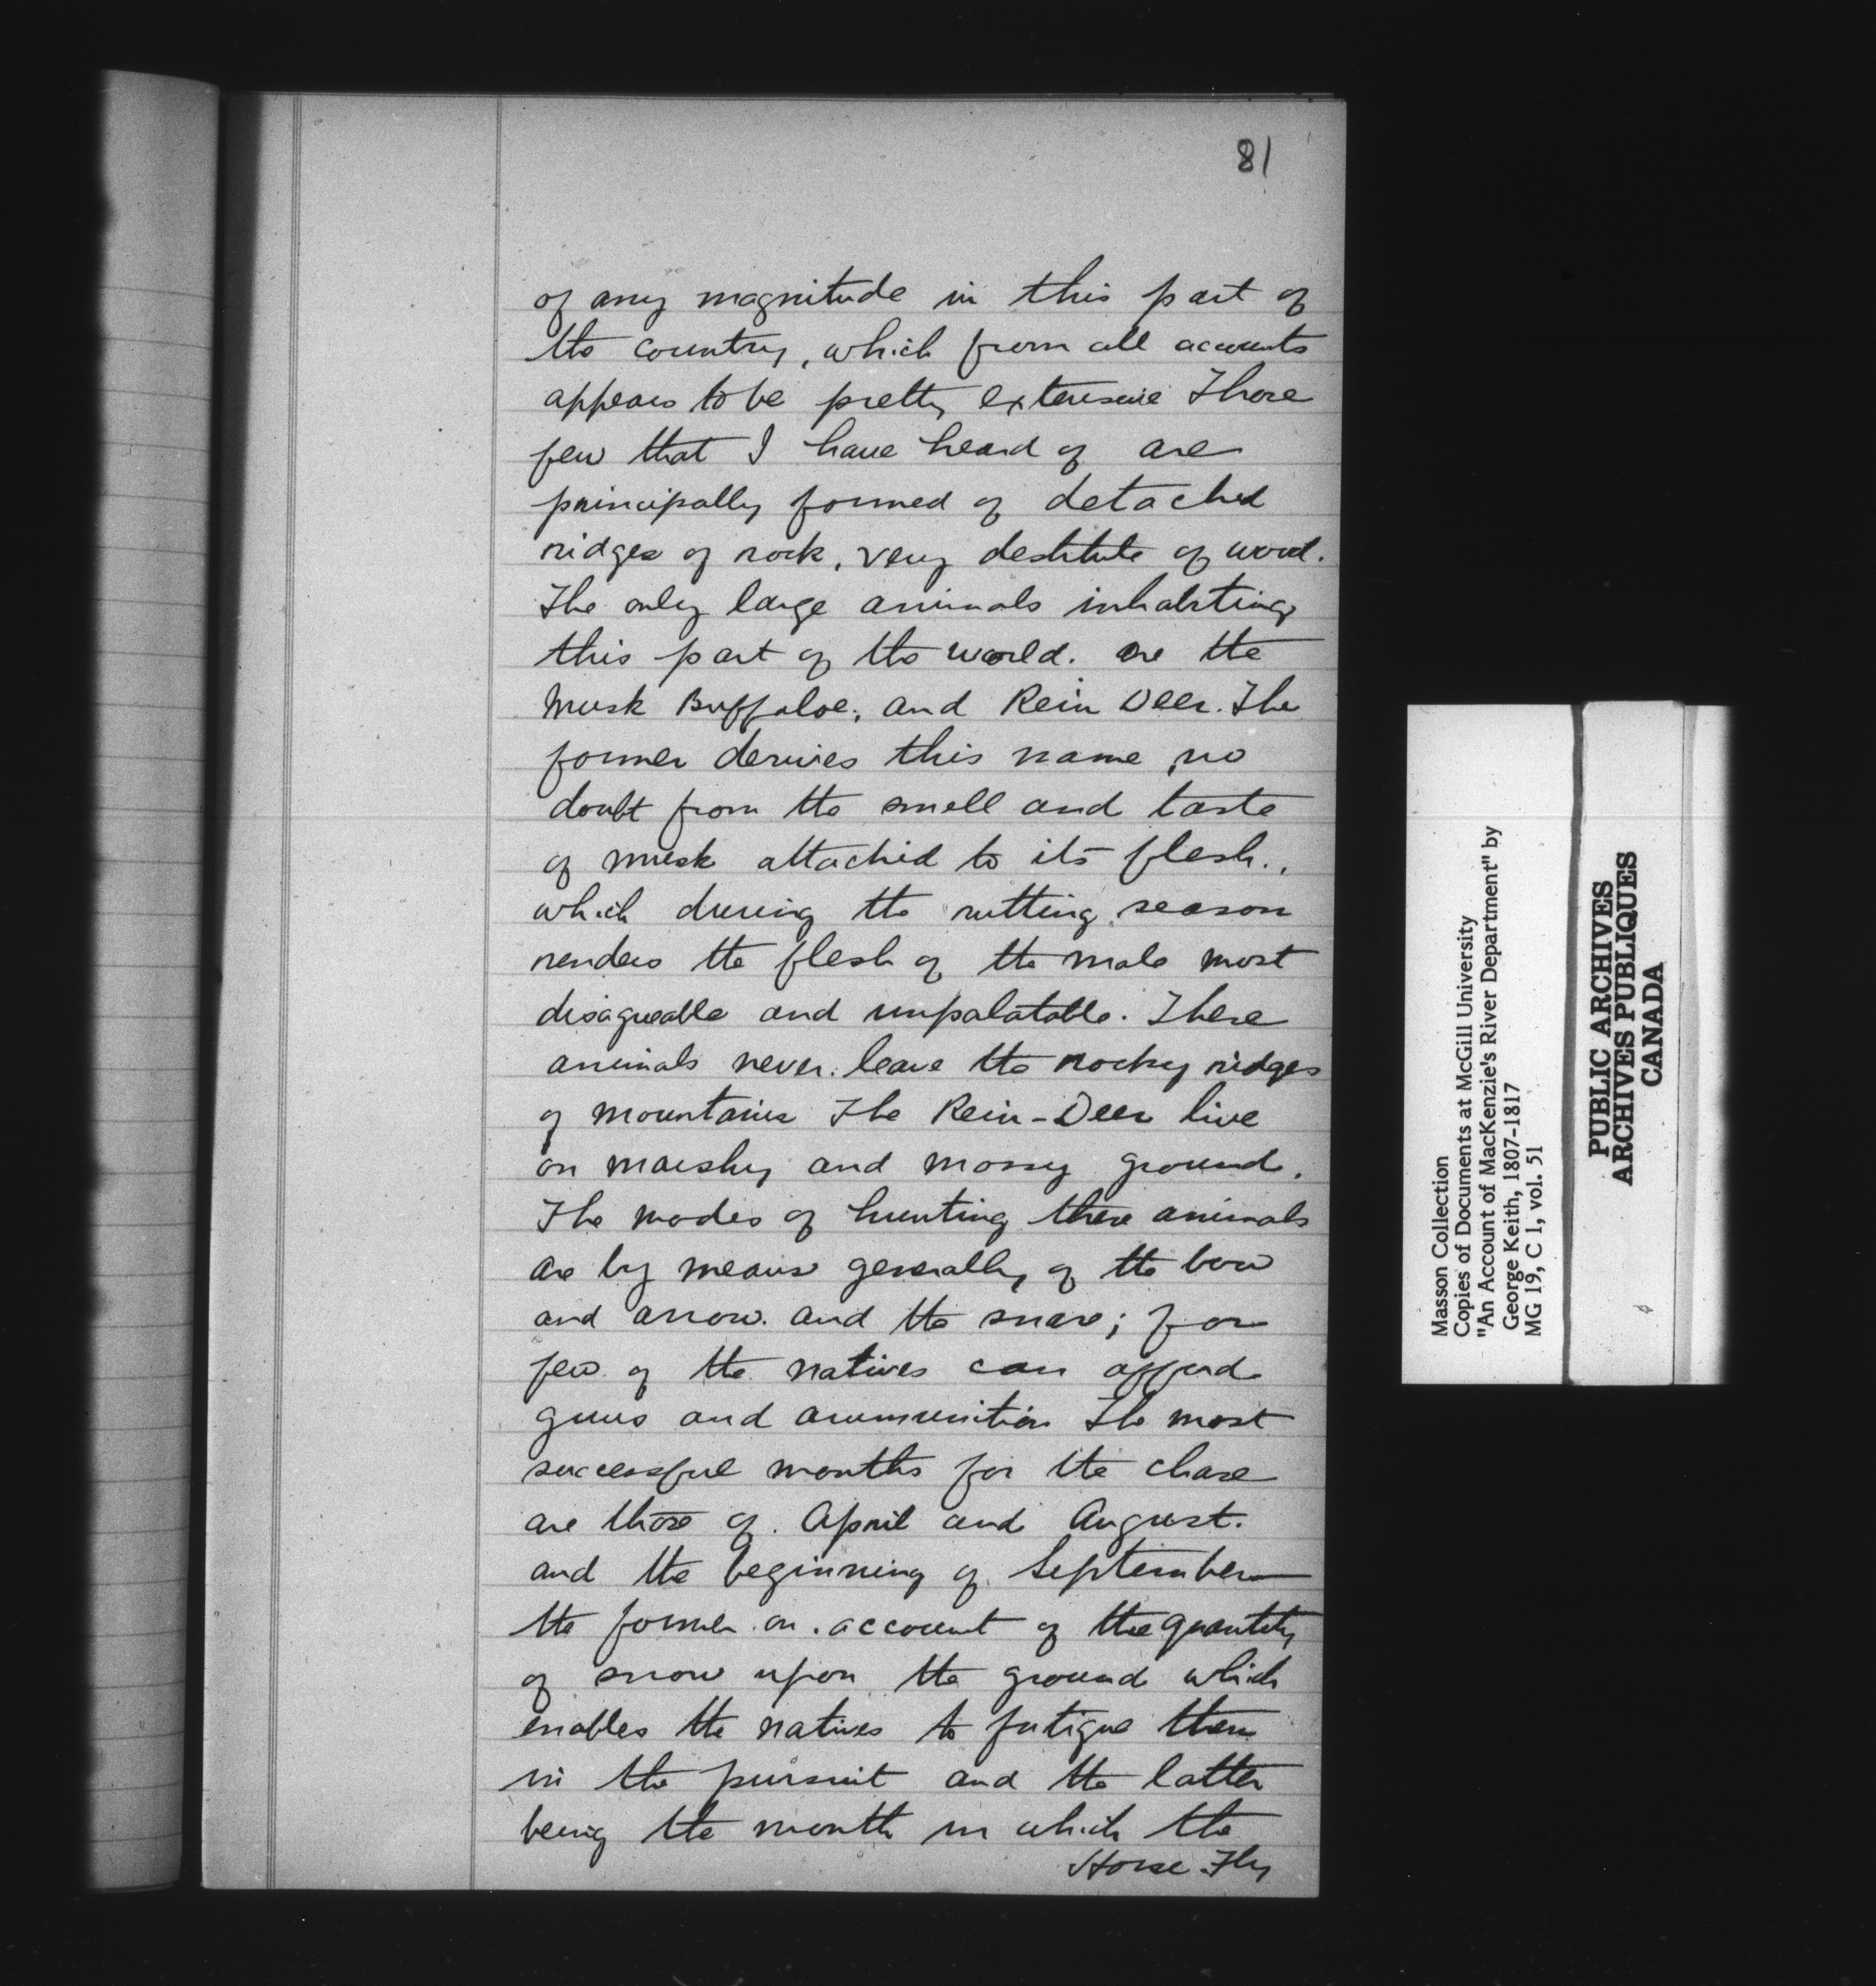 81
of any magnitude in this part of
the country, which from all accounts
appears to be pretty extensive Those
few that I have heard of are
principally formed of detached
ridges of rock, very destitute of wood.
The only large animals inhabiting
this part of the world. are the
Musk Buffaloe, and Rein Deer. The
former derives this name, no
doubt from the smell and taste
of musk attached to its flesh,
which during the rutting season
renders the flesh of the male most
disagreable and unpalatable. These
animals never leave the rocky ridges
of mountains The Rein-Deer live
on marshy and mossy ground.
The modes of hunting these animals
are by means generally of the bow
and arrow. and the snare; for
few of the natives can afford
guns and ammunition The most
successful months for the chase
are those of April and August.
and the beginning of September
the former on account of the quantity
of snow upon the ground which
enables the natives to fatigue them
in the pursuit and the latter
being the month in which the
Horse Fly
Masson Collection
Copies of Documents at McGill University
"An Account of MacKenzie's River Department" by
George Keith, 1807-1817
MG 19, C 1, vol. 51
PUBLIC ARCHIVES
ARCHIVES PUBLIQUES
CANADA